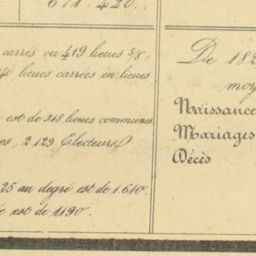 671.420.
carrés ou 419 lieues
lieues carrées en lieues
est de 318 lieues communes
2.129 Electeurs
25 au degré est de 1.610.
est de 1190.
De 18
moy
Naissance
Mariages
Décès